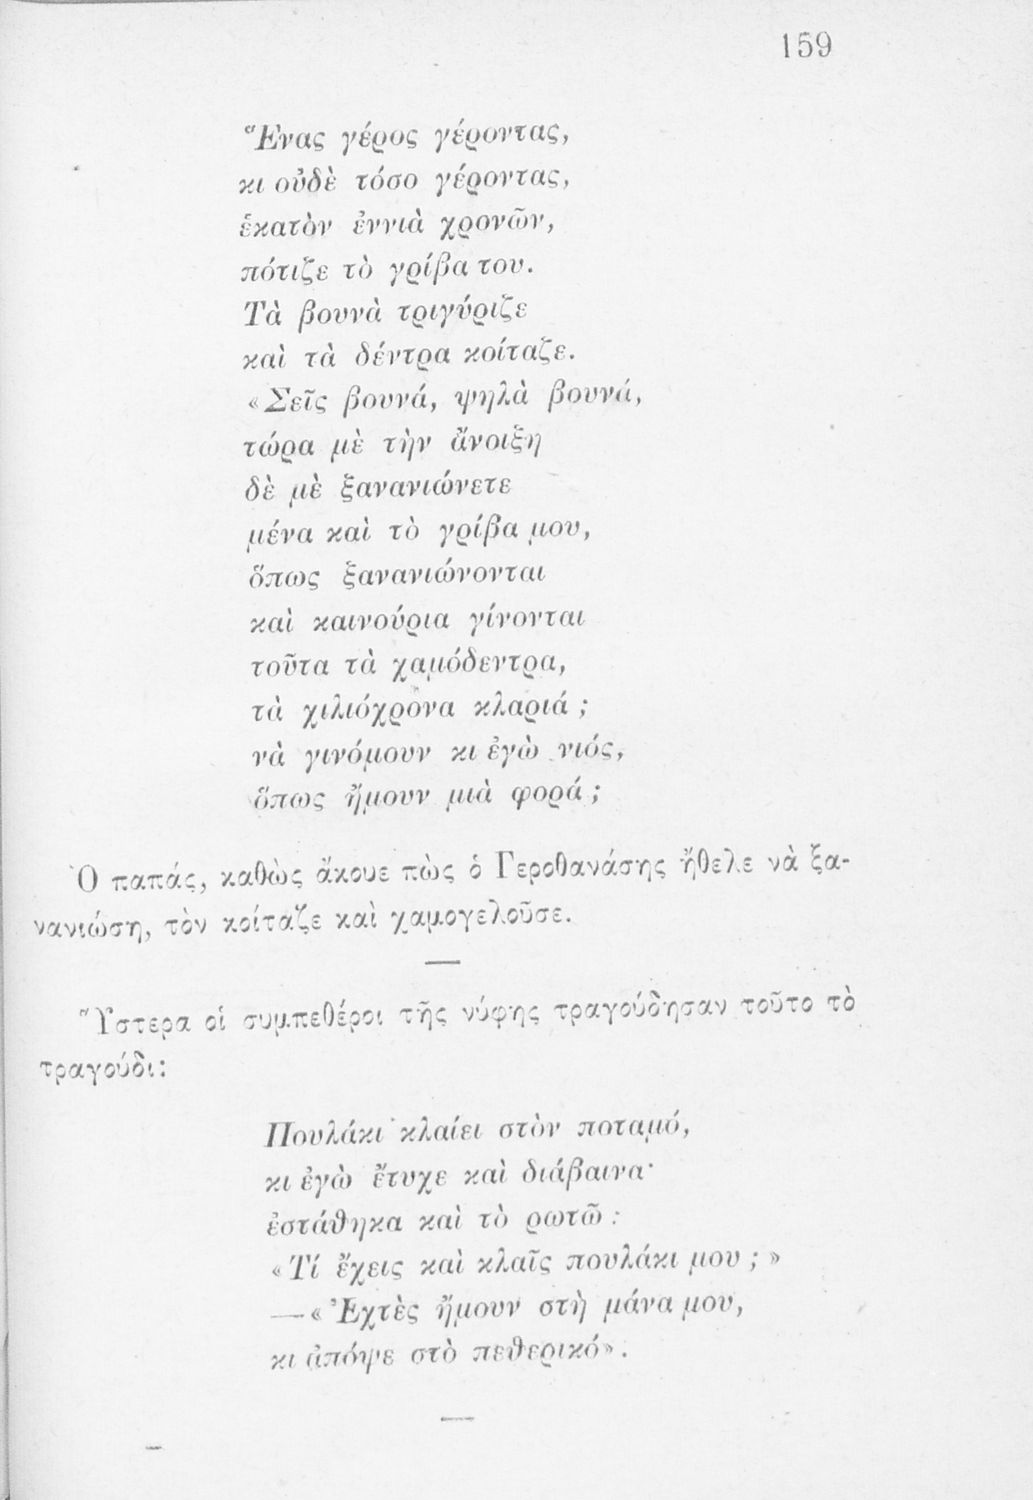 159
Ἕνας γέρος γέροντας,
κι οὐδὲ τόσο γέροντας,
ἑκατὸν ἐννιὰ χρονῶν,
πότιζε τὸ γρίβα του.
Τὰ βουνὰ τριγύριζε
καὶ τὰ δέντρα κοίταζε.
«Σεῖς βουνά, ψηλὰ βουνά,
τώρα μὲ τὴν ἄνοιξη
δὲ μὲ ξανανιώνετε
μένα καὶ τὸ γρίβα μου,
ὅπως ξανανιώνονται
καὶ καινούρια γίνονται
τοῦτα τὰ χαμόδεντρα,
τὰ χιλιόχρονα κλαριά ;
νὰ γινόμουν κι ἐγὼ νιός,
ὅπως ἤμουν μιὰ φορά ;
Ὁ παπάς, καθὼς ἄκουε πὼς ὁ Γεροθανάσης ἤθελε νὰ ξα-
νανιώση, τὸν κοίταζε καὶ χαμογελοῦσε.
Ὕστερα οἱ συμπεθέροι τῆς νύφης τραγούδησαν τοῦτο τὸ
τραγούδι:
Πουλάκι κλαίει στὸν ποταμό,
κι ἐγὼ ἔτυχε καὶ διάβαινα·
ἐστάθηκα καὶ τὸ ρωτῶ :
«Τί ἔχεις καὶ κλαῖς πουλάκι μου ; »
—«Ἐχτὲς ἤμουν στὴ μάνα μου,
κι ἀπόψε στὸ πεθερικό».